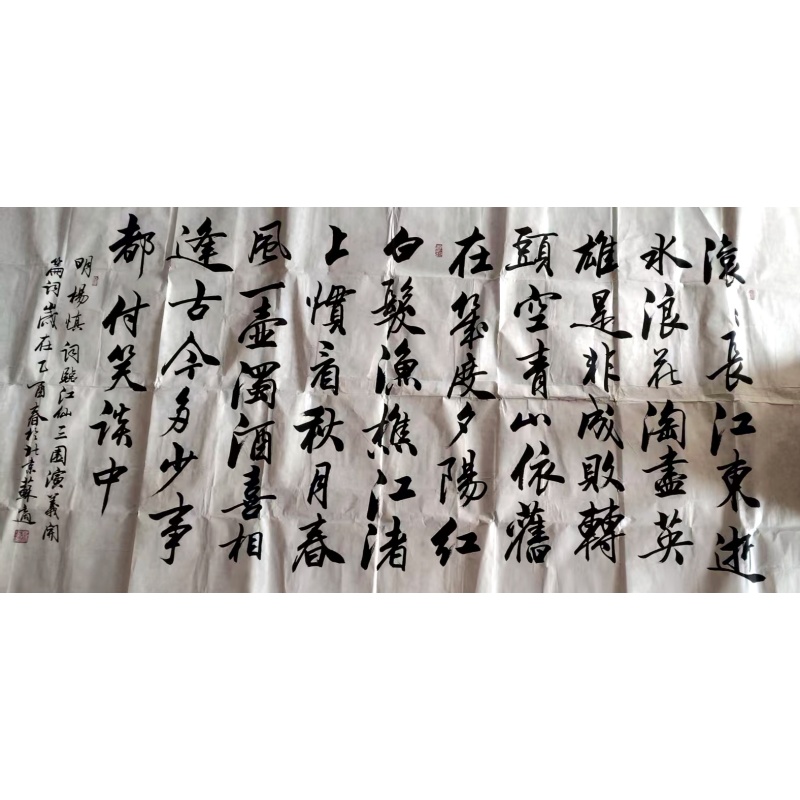 滾〻長江東逝
水浪花淘盡英
雄是非成敗轉
頭空青山依舊
在幾度夕陽紅
白髮漁樵江渚
上慣看秋月春
風一壺濁酒喜相
逢古今多少事
都付笑談中
明楊慎詞臨江仙三國演義開
篇詞歲在乙酉春於北京蘇